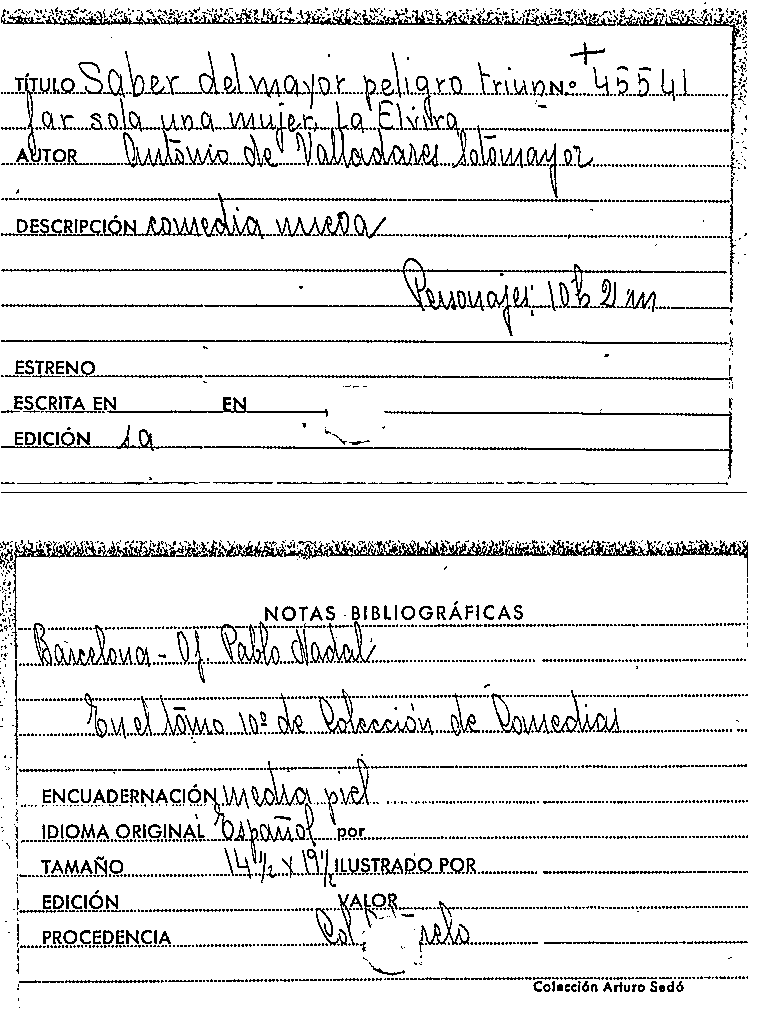 +
TÍTULO Saber del mayor peligro triun Nº 45541
far sola una mujer. La Elvira
AUTOR Antonio de Valladares Sotomayor
DESCRIPCIÓN comedia nueva
Personajes: 10 h 2 m
ESTRENO
ESCRITA EN EN
EDICIÓN 1a
NOTAS BIBLIOGRÁFICAS
Barcelona - Of Pablo Nadal
En el tomo 10º de Colección de Comedias
ENCUADERNACIÓN media piel
IDIOMA ORIGINAL Español por
TAMAÑO 14 1/2 x 19 1/2 ILUSTRADO POR
EDICIÓN VALOR
PROCEDENCIA Col
Colección Arturo Sedó